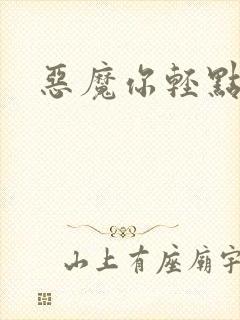 惡魔你輕點
山上有座廟宇